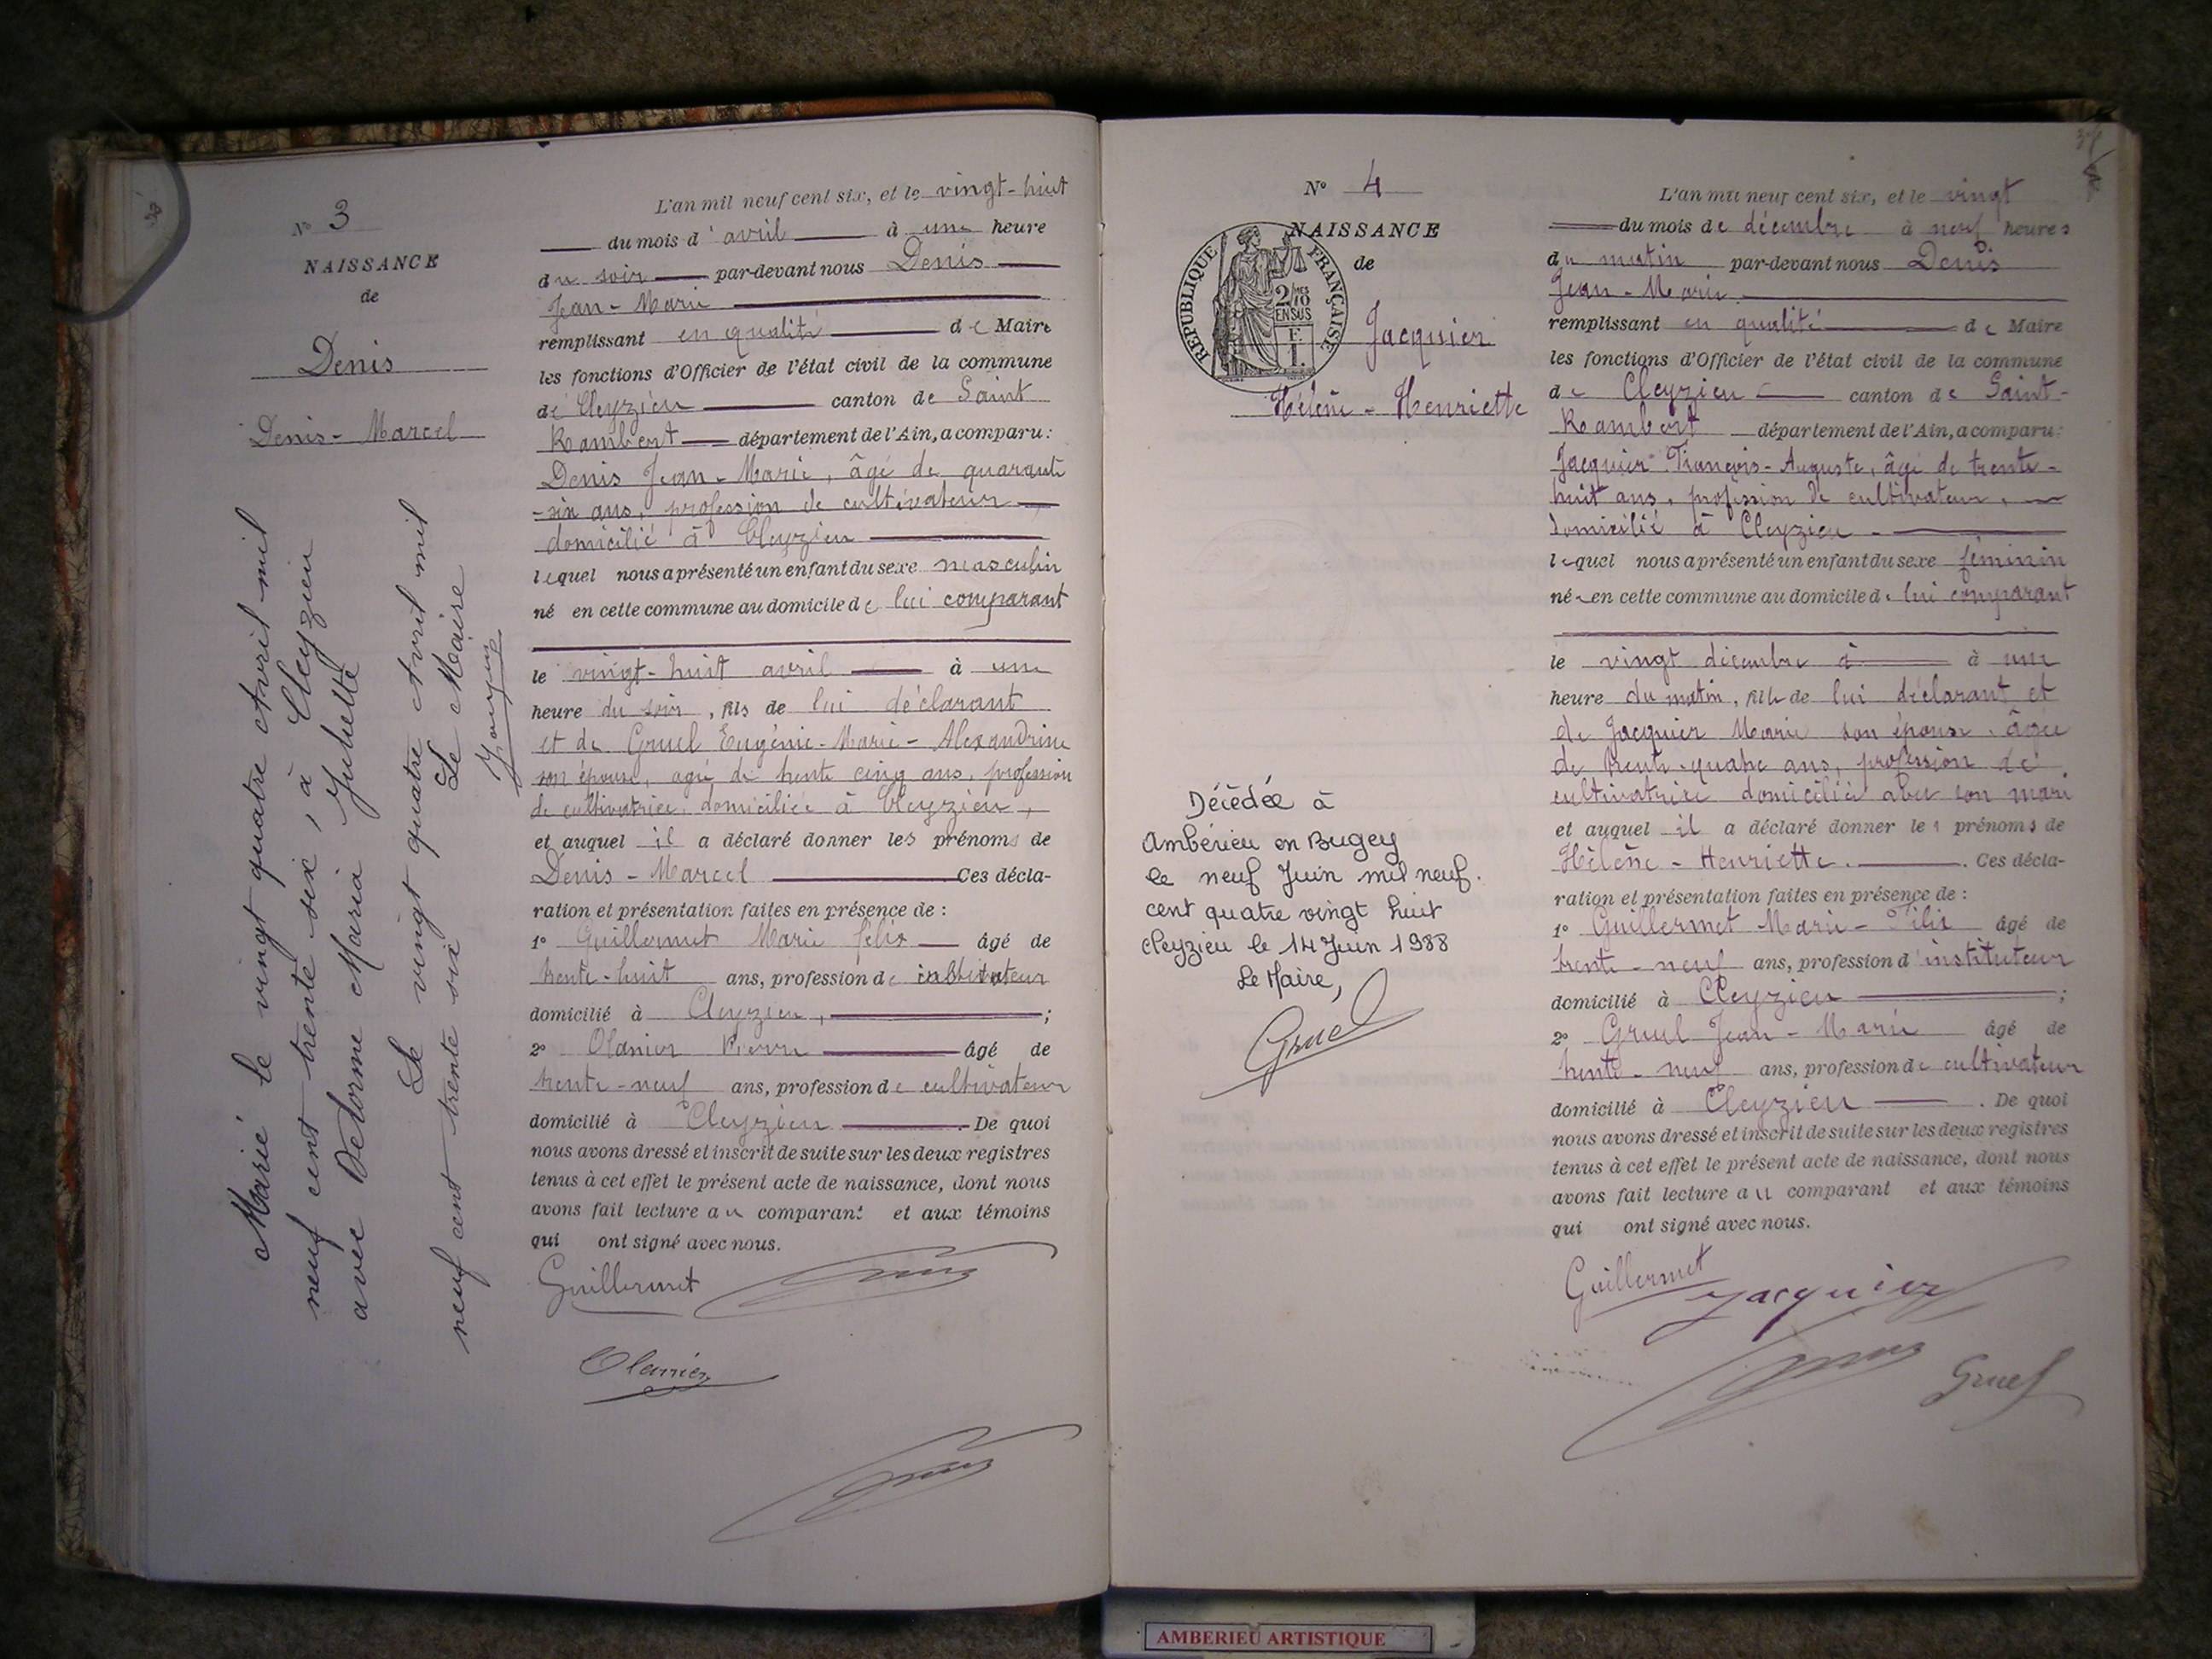 N° 3
NAISSANCE
de
Denis
Denis-Marcel
Marié le vingt quatre Avril mil
neuf cent trente six, à Cleyzieu
avec Delorme Maria Juliette
Le vingt quatre Avril mil
neuf cent trente six
Le Maire
L'an mil neuf cent six, et le vingt-huit
du mois d'avril à une heure
du soir par-devant nous Denis
Jean-Marie
remplissant en qualité de Maire
les fonctions d'Officier de l'état civil de la commune
de Cleyzieu canton de Saint
Rambert département de l'Ain, a comparu:
Denis Jean-Marie, âgé de quarante
-six ans, profession de cultivateur
domicilié à Cleyzieu
lequel nous a présenté un enfant du sexe masculin
né en cette commune au domicile de lui comparant
le vingt-huit avril à une
heure du soir, fils de lui déclarant
et de Gruel Eugénie-Marie-Alexandrine
son épouse, agée de trente cinq ans, profession
de cultivatrice, domiciliée à Cleyzieu,
et auquel il a déclaré donner les prénoms de
Denis-Marcel Ces décla-
ration et présentation faites en présence de :
1° Guillermet Marie félix âgé de
trente-huit ans, profession de instituteur
domicilié à Cleyzieu, ;
2° Olanier Pierre âgé de
trente-neuf ans, profession de cultivateur
domicilié à Cleyzieu .- De quoi
nous avons dressé et inscrit de suite sur les deux registres
tenus à cet effet le présent acte de naissance, dont nous
avons fait lecture au comparant et aux témoins
qui ont signé avec nous.
Guillermet
Olanier
N° 4
NAISSANCE
de
RÉPUBLIQUE FRANÇAISE
2/10
EN SUS
Jacquier
Hélène-Henriette
Décédée à
Ambérieu en Bugey
le neuf Juin mil neuf.
cent quatre vingt huit
Cleyzieu le 14 Juin 1988
Le Maire,
Gruel
L'an mil neuf cent six, et le vingt
du mois de décembre à neuf heures
du matin par-devant nous Denis
Jean-Marie
remplissant en qualité de Maire
les fonctions d'Officier de l'état civil de la commune
de Cleyzieu canton de Saint-
Rambert département de l'Ain, a comparu:
Jacquier François-Auguste, âgé de trente-
huit ans, profession de cultivateur,
domicilié à Cleyzieu
lequel nous a présenté un enfant du sexe féminin
né en cette commune au domicile de lui comparant
le vingt décembre à à une
heure du matin, fille de lui déclarant et
de Jacquier Marie son épouse, âgée
de trente-quatre ans, profession de
cultivatrice domiciliée avec son mari
et auquel il a déclaré donner les prénoms de
Hélène-Henriette. . Ces décla-
ration et présentation faites en présence de :
1° Guillermet Marie-Félix âgé de
trente-neuf ans, profession d'instituteur
domicilié à Cleyzieu ;
2° Gruel Jean-Marie âgé de
trente-neuf ans, profession de cultivateur
domicilié à Cleyzieu . De quoi
nous avons dressé et inscrit de suite sur les deux registres
tenus à cet effet le présent acte de naissance, dont nous
avons fait lecture au comparant et aux témoins
qui ont signé avec nous.
Guillermet
Jacquier
Gruel
AMBERIEU ARTISTIQUE